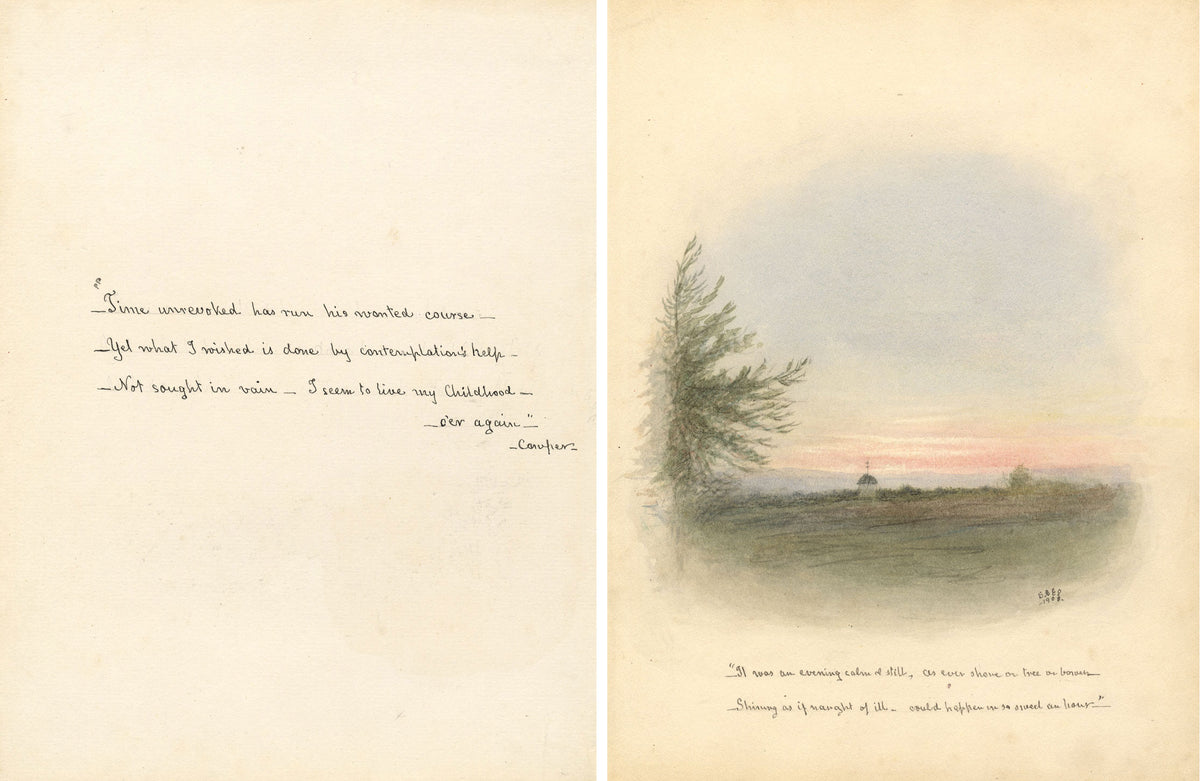 "Time unrevoked has run his wonted course —
— Yet what I wished is done by contemplation's help —
— Not sought in vain — I seem to live my Childhood —
— o'er again" —
— Cowper —
1908.
"It was an evening calm & still, as ever shone on tree or bower —
— Shining as if naught of ill — could happen in so sweet an hour —"